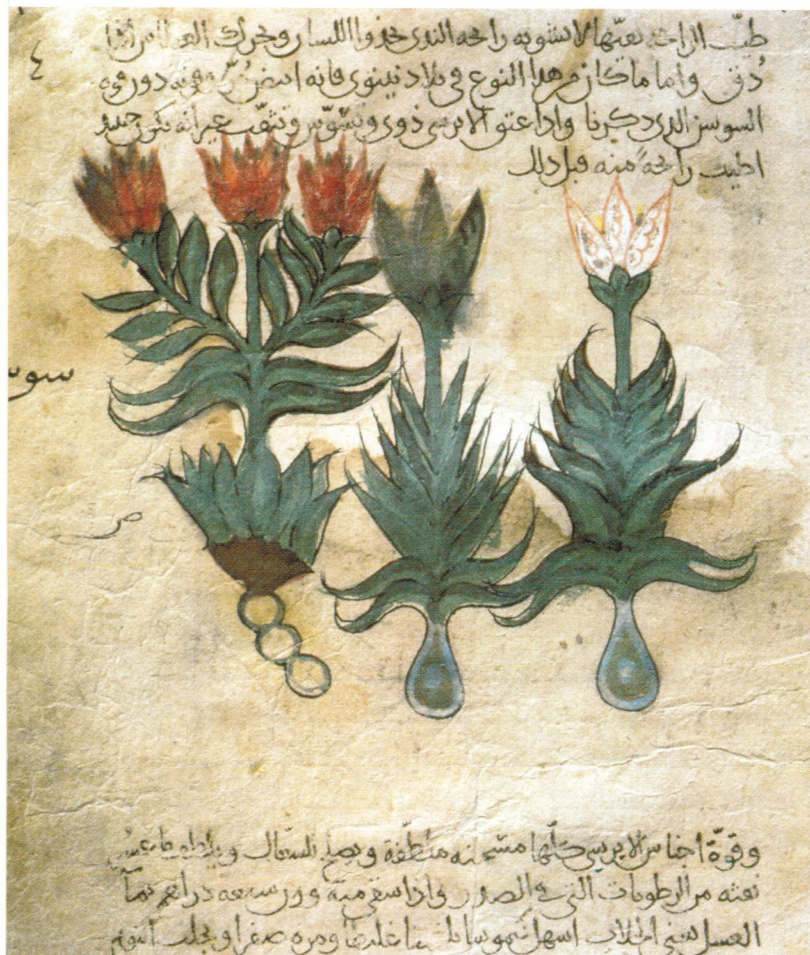 طيب الراحه نعتها لا تشوبه راحه الندى يحذوا اللسان ويحرك العطاس اذا
دق واما ما كان من هذا النوع في بلاد نينوى فانه ابيض مر وقوته دون قوه
السوسن الذى ذكرنا واذا عتق الايرسى ذوى وتسوس وتثقب غير انه يكون حينيذ
اطيب راحه منه قبل ذلك
سوس
وقوة اجناس الايرسى كلها مسخنه ملطفة ويصلح للسعال ويلطف ما عسر
نفثه من الرطوبات التى فى الصدر واذا سقى منه وزن سبعه دراهم بماء
العسل اسهل كيموسا غليظا ومره صفرا ويجلب النوم